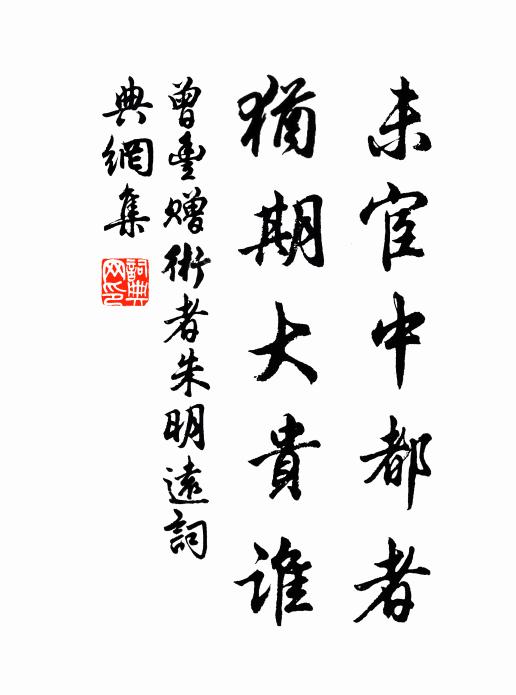 未宦中都者
猶期大貴誰
曾豐贈術者朱明遠詞
典網集
詞典網印